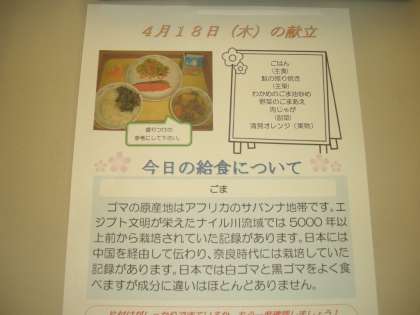 4月18日(木)の献立
ごはん
(主食)
鮭の照り焼き
(主菜)
わかめのごま油炒め
野菜のごまあえ
肉じゃが
(副菜)
清見オレンジ(果物)
盛りつけの
参考にして下さい。
今日の給食について
ごま
ゴマの原産地はアフリカのサバンナ地帯です。エ
ジプト文明が栄えたナイル川流域では5000年以
上前から栽培されていた記録があります。日本には
中国を経由して伝わり、奈良時代には栽培していた
記録があります。日本では白ゴマと黒ゴマをよく食
べますが成分に違いはほとんどありません。